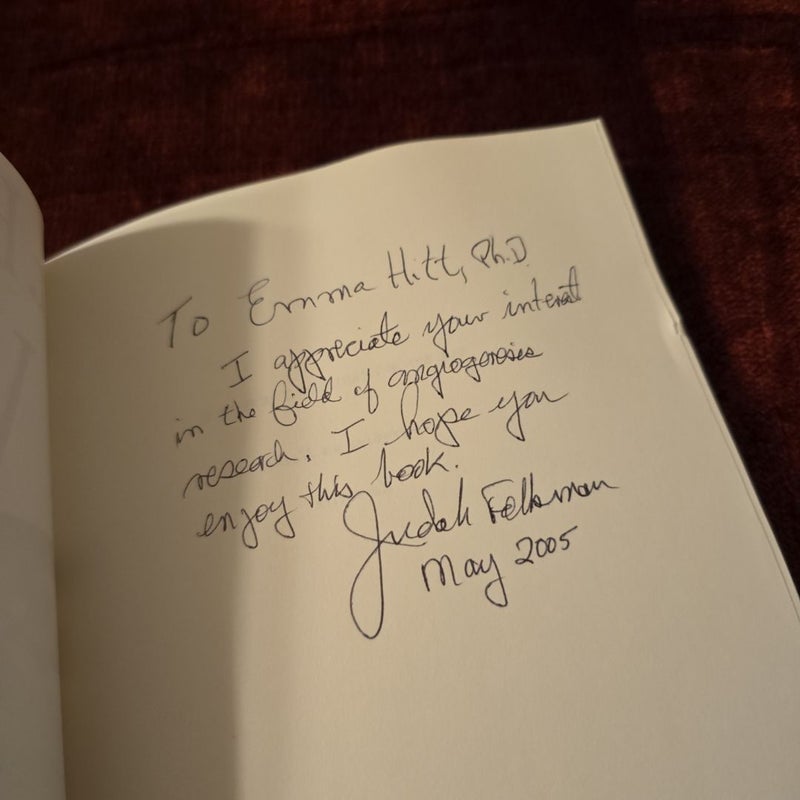 To Emma Hitt, Ph.D.
I appreciate your interest
in the field of angiogenesis
research. I hope you
enjoy this book.
Judah Folkman
May 2005